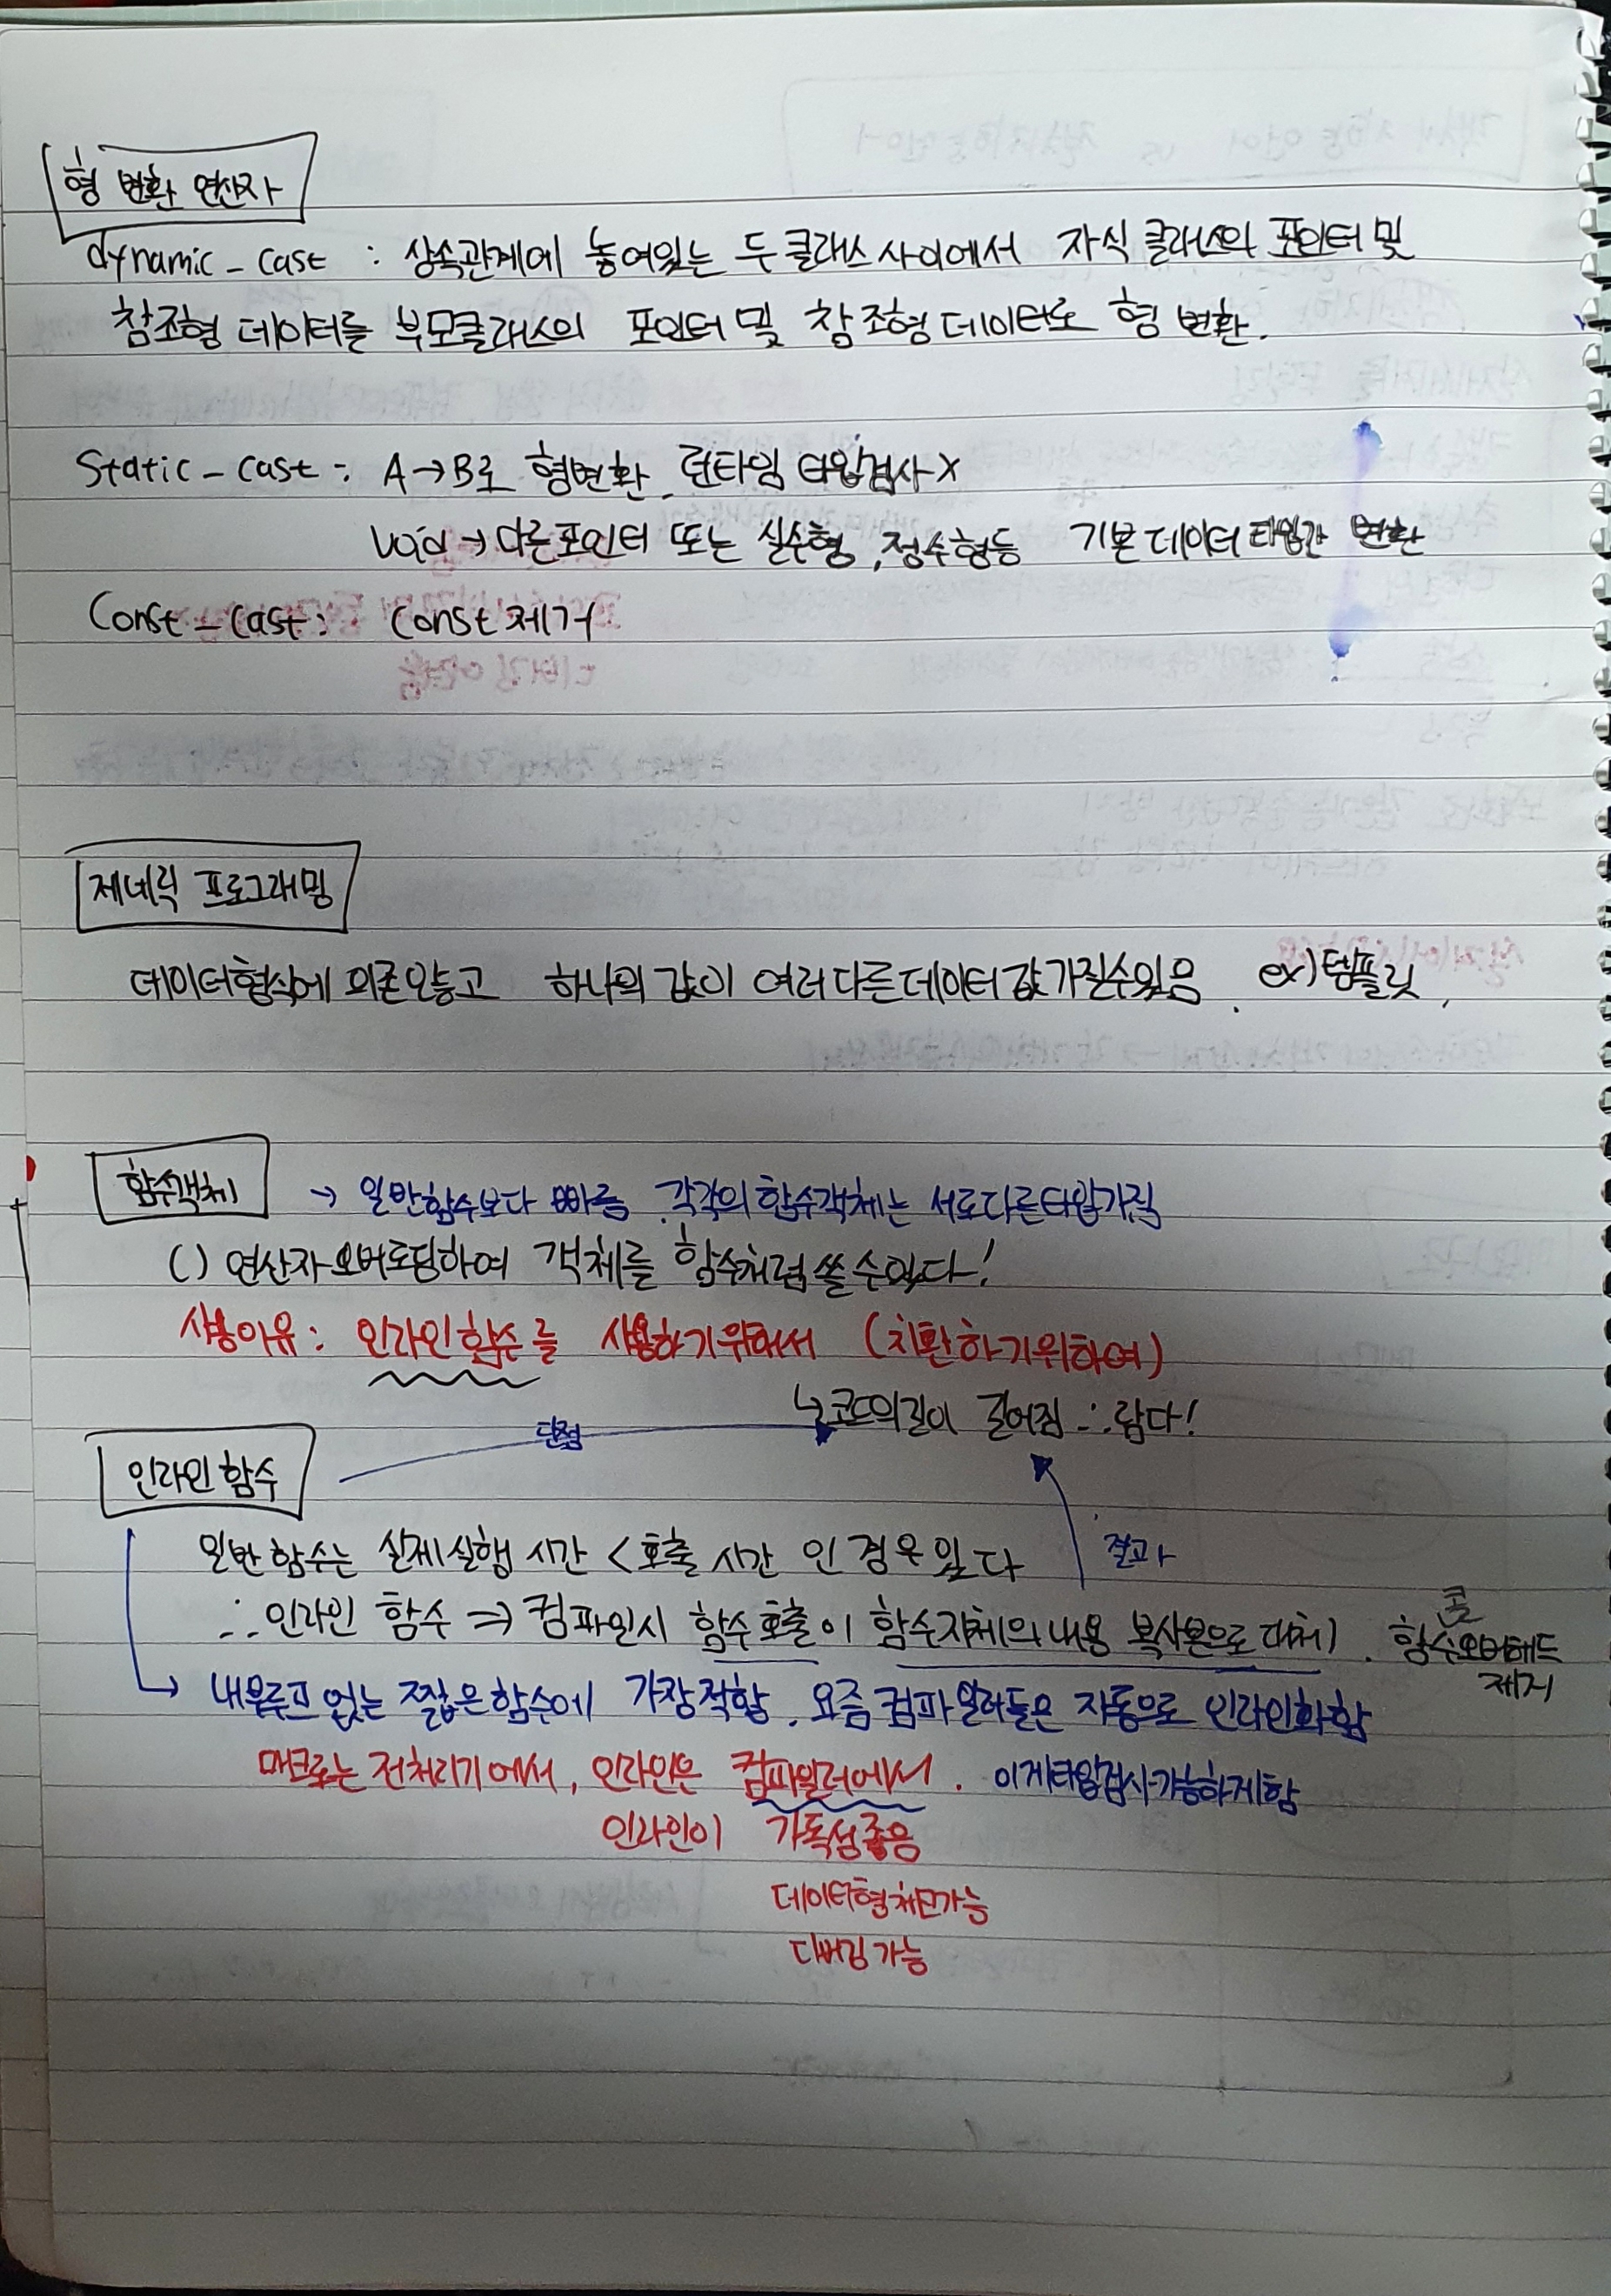 형 변환 연산자
dynamic_cast : 상속관계에 놓여있는 두 클래스 사이에서 자식 클래스의 포인터 및
참조형 데이터를 부모클래스의 포인터 및 참조형데이터로 형 변환.
Static_cast : A→B로 형변환. 런타임 타입검사X
void → 다른포인터 또는 실수형, 정수형등 기본데이터 타입간 변환
Const_cast : Const 제거
제네릭 프로그래밍
데이터형식에 의존않고 하나의 값이 여러다른데이터값가질수있음. ex)템플릿,
함수객체 → 일반함수보다 빠름. 각각의함수객체는 서로다른타입가짐
() 연산자오버로딩하여 객체를 함수처럼쓸수있다!
사용이유: 인라인함수를 사용하기위해서 (치환하기위하여)
↳코드의길이 길어짐 ∴람다!
단점
인라인 함수
일반함수는 실제실행 시간 < 호출 시간 인 경우 있다
결과
∴ 인라인 함수 ⇒ 컴파일시 함수호출이 함수자체의내용 복사본으로 대체). 함수콜오버헤드
제거
→ 내용두고 없는 짧은함수에 가장적합. 요즘컴파일러들은 자동으로 인라인화함
매크로는 전처리기에서, 인라인은 컴파일러에서. 이게타입검사가능하게함
인라인이 가독성좋음
데이터형체크가능
디버깅 가능